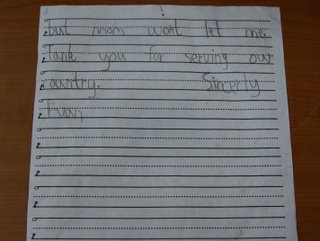 but mom wont let me.
Tank you for serving our
ountry. Sincerly
Finn